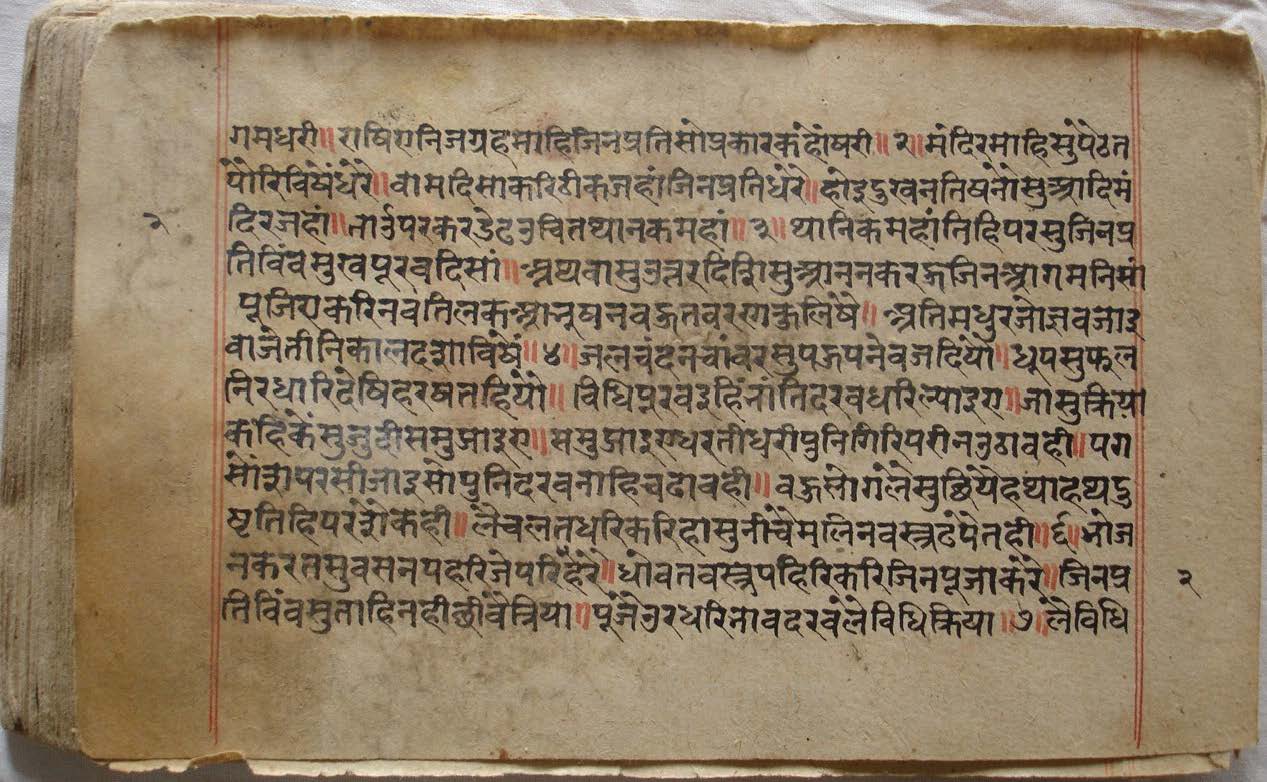 गमधरी॥ राषिएनिजग्रहमाहिजिनप्रतिसोप्रकारकंहोंषरी॥२॥मंदिरमाहिसुंपेठत
पोरिविषंधरे॥वामदिसाकरिठीकजहांजिनप्रतिधरे॥होइदुखनतिषनोसुआदिमं
दिरजहां॥ताउपरकरउेढउचितथानकमहां॥३॥थानिकमहांतिहिपरसुजिनप्र
तिविंवसुखपूरवदिसां॥अथवासुउत्तरदिशिसुआननकरऊजिनआगमनिसां
पूजिएकरिनवतिलकआभूषनवऊतवरगकुलिंषे॥अतिमधुरजोजवजोइ
वाजेतीनिकालदशोविंषें॥४॥जलचंदनचांवरसुपऊपनेवजदियो॥धूपसुफल
निरधारिदेषिहरषतहियो॥विधिपूरवइहिंभांतिदरवधरिल्याइए॥जासुक्रिया
कहिकेसुनुदीससमुझाइए॥समुझाइएधरतीधरीपुनिगिरिपरीनउठावही॥पग
सोंशेपरसीजोइसोपुनिदरवनाहिचढावही॥वऊसोगलेसुछियेहथाहथदु
ष्टतिहिपरशेकेही॥लैचलतधरिकरिहासुनीचेमलिनवस्त्रढंपेतही॥६॥भोज
नकरतसुवसनपहरिजेपरिहेरे॥धोवतवस्त्रपहिरिकरिजिनपूजाकरे॥जिनप्र
तिविंवसुताहिनहीछीवेत्रिया॥पूजेउरधरिभावदरवलेविधिक्रिया॥७॥लैविधि
२
२